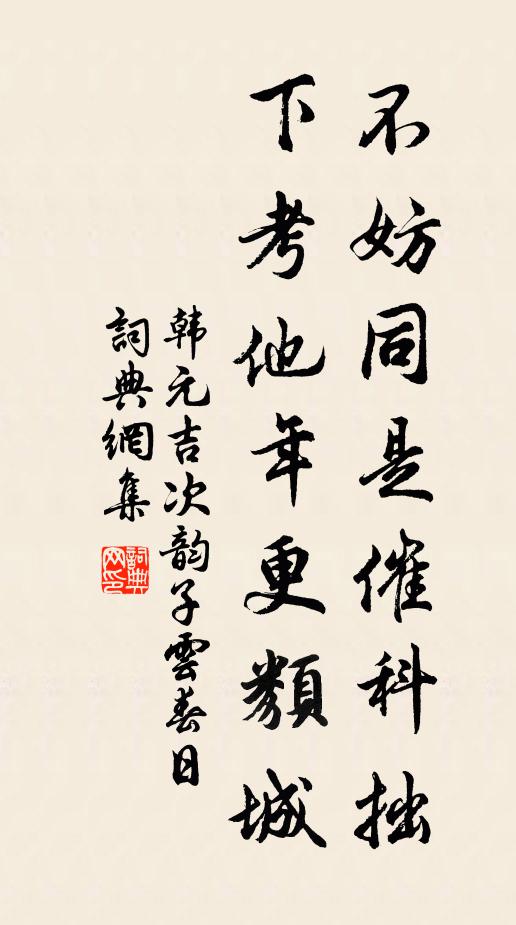 不妨同是催科拙
下考他年更類城
韩元吉次韵子雲春日
詞典網集
詞典網印